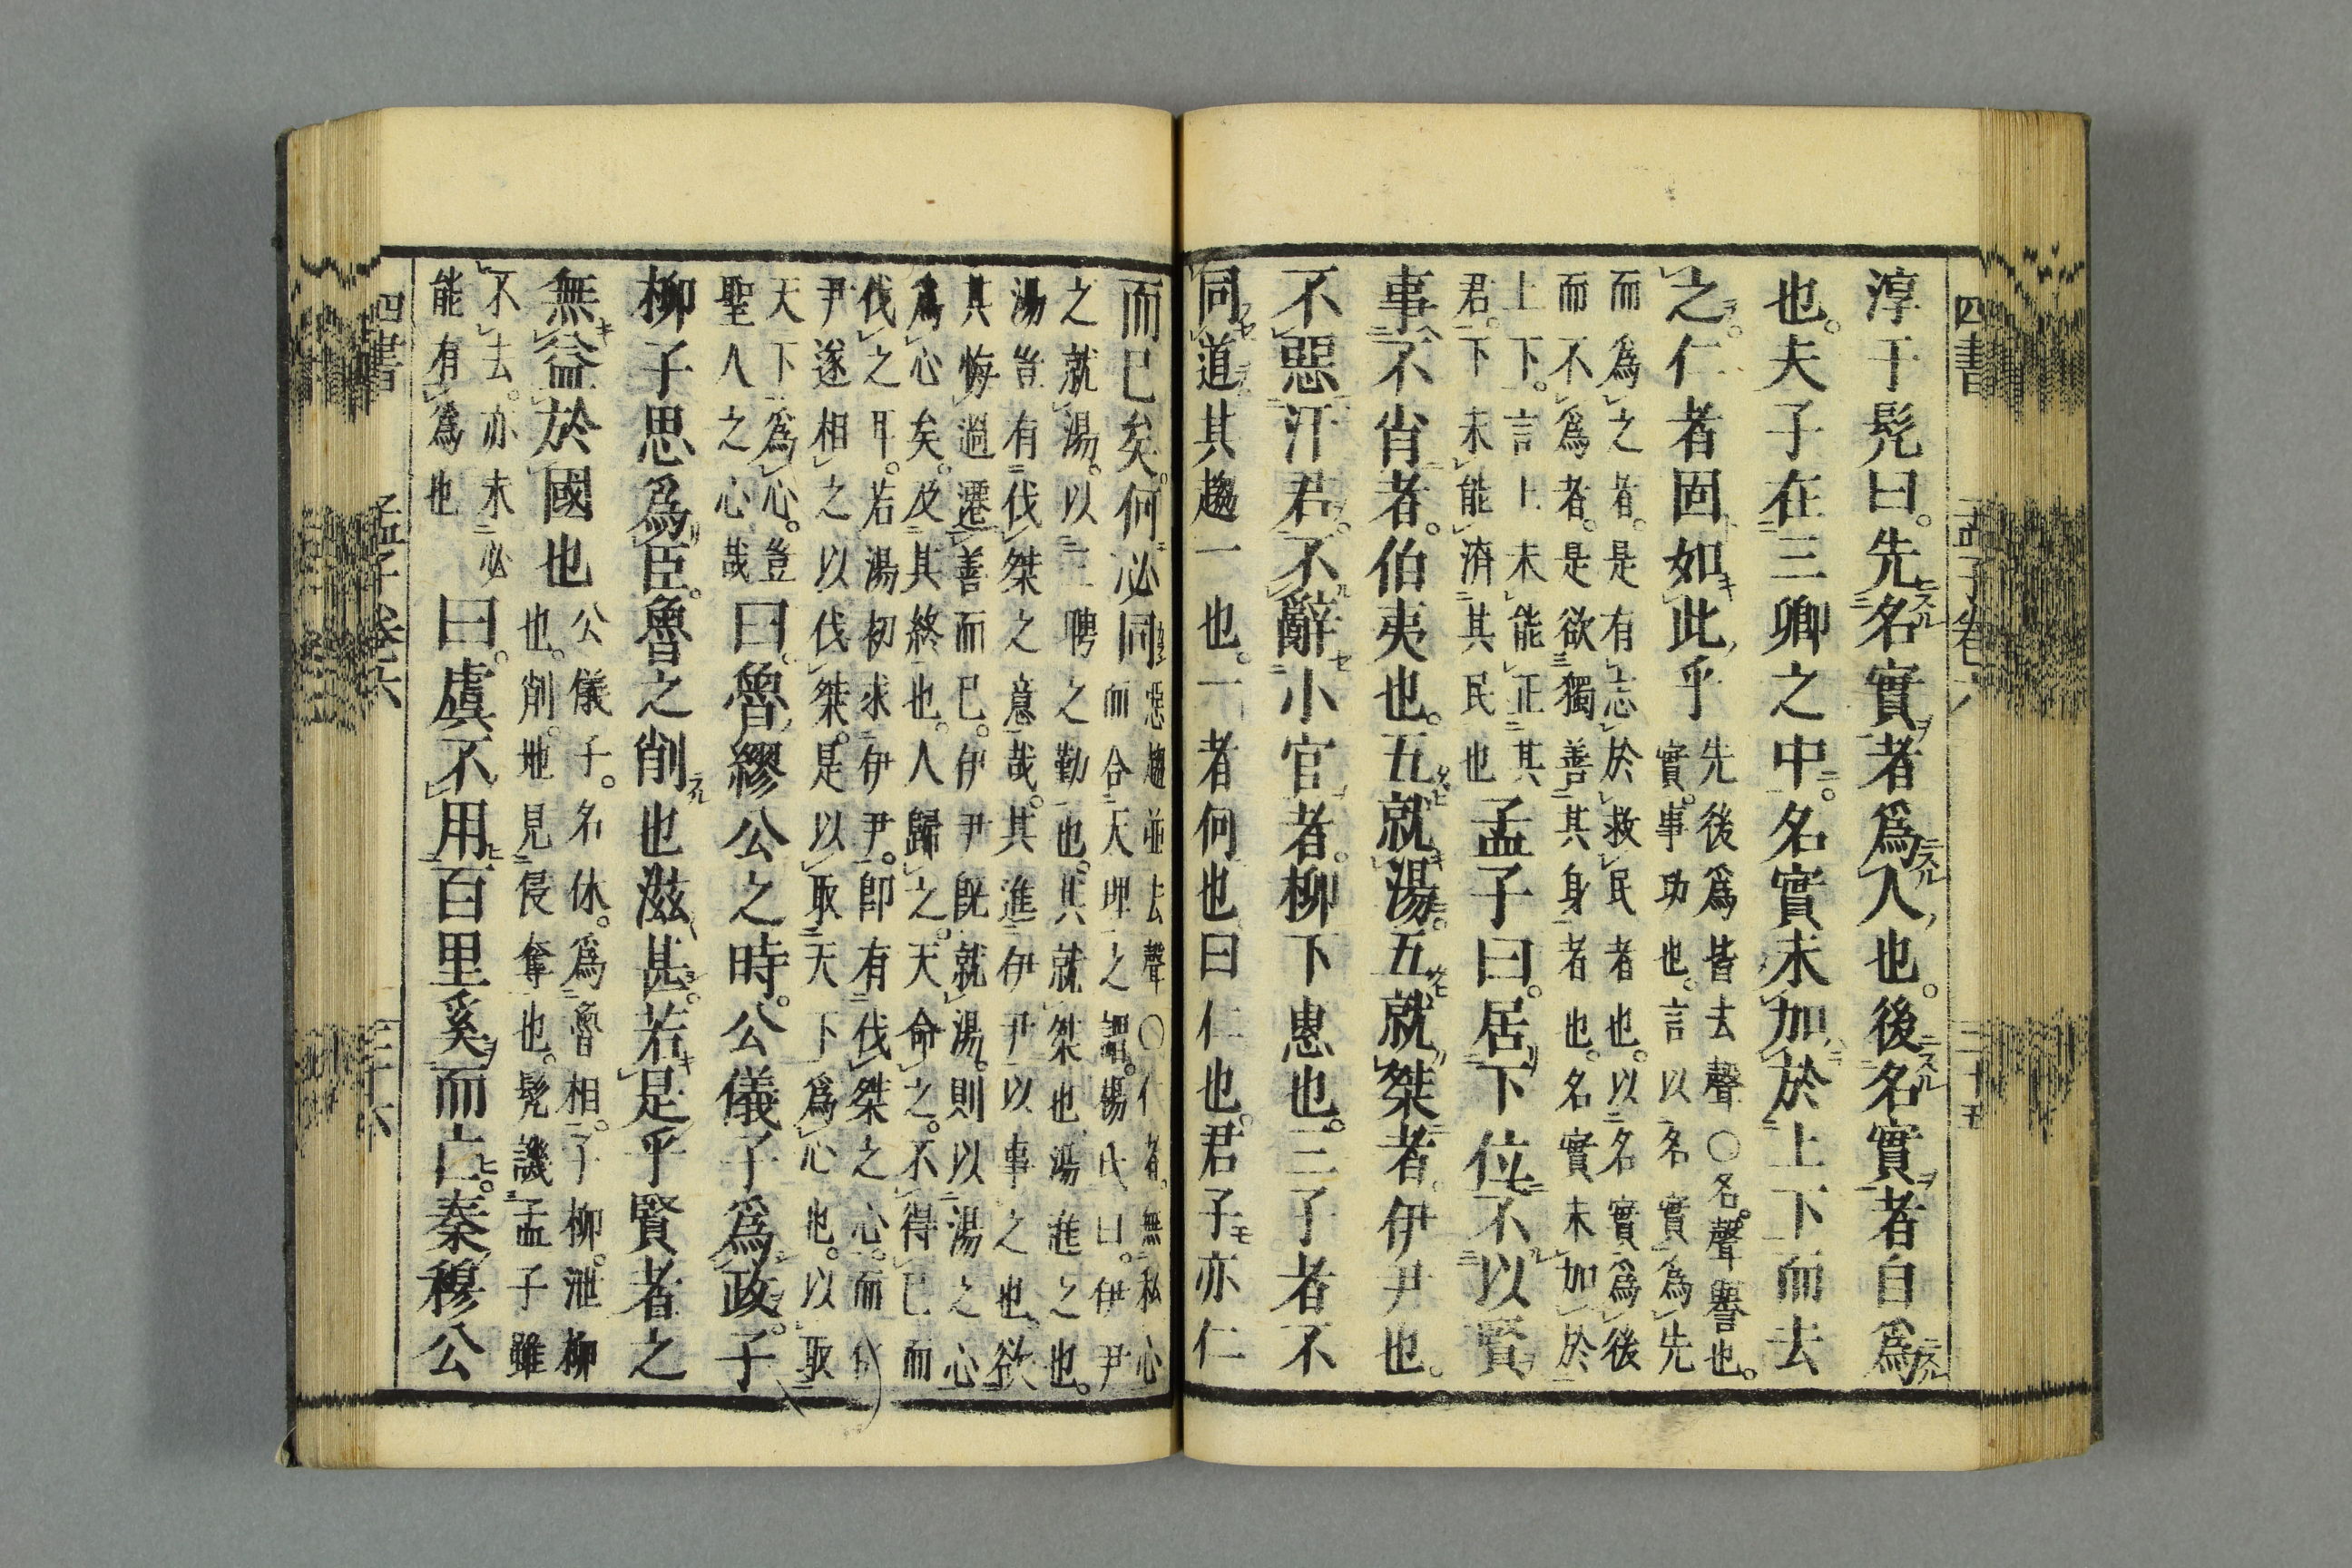 四書 孟子卷六 三十五
淳于髡曰。先名實者爲人也。後名實者自爲
也。夫子在三卿之中。名實未加於上下而去
之。仁者固如此乎
先後爲皆去聲○名。聲譽也。
實。事功也。言以名實爲先
而爲之者。是有志於救民者也。以名實爲後
而不爲者。是欲獨善其身者也。名實未加於
上下。言上未能正其
君。下未能濟其民也
孟子曰。居下位。不以賢
事不肖者。伯夷也。五就湯。五就桀者。伊尹也。
不惡汙君。不辭小官者。柳下惠也。三子者不
同道其趨一也。一者何也曰仁也。君子亦仁
而已矣。何必同
惡趨並去聲○仁者。無私心
而合天理之謂。楊氏曰。伊尹
之就湯。以三聘之勤也。其就桀也湯進之也。
湯豈有伐桀之意哉。其進伊尹以事之也。欲
其悔過遷善而已。伊尹既就湯。則以湯之心
爲心矣。及其終也。人歸之。天命之。不得已而
伐之耳。若湯初求伊尹。即有伐桀之心。而伊
尹遂相之以伐桀。是以取天下爲心也。以取
天下爲心。豈
聖人之心哉
曰。魯繆公之時。公儀子爲政。子
柳子思爲臣。魯之削也滋甚。若是乎賢者之
無益於國也
公儀子。名休。爲魯相。子柳。泄柳
也。削。地見侵奪也。髡譏孟子雖
不去。亦未必
能有爲也
曰。虞不用百里奚而亡。秦穆公
四書 孟子卷六 三十六